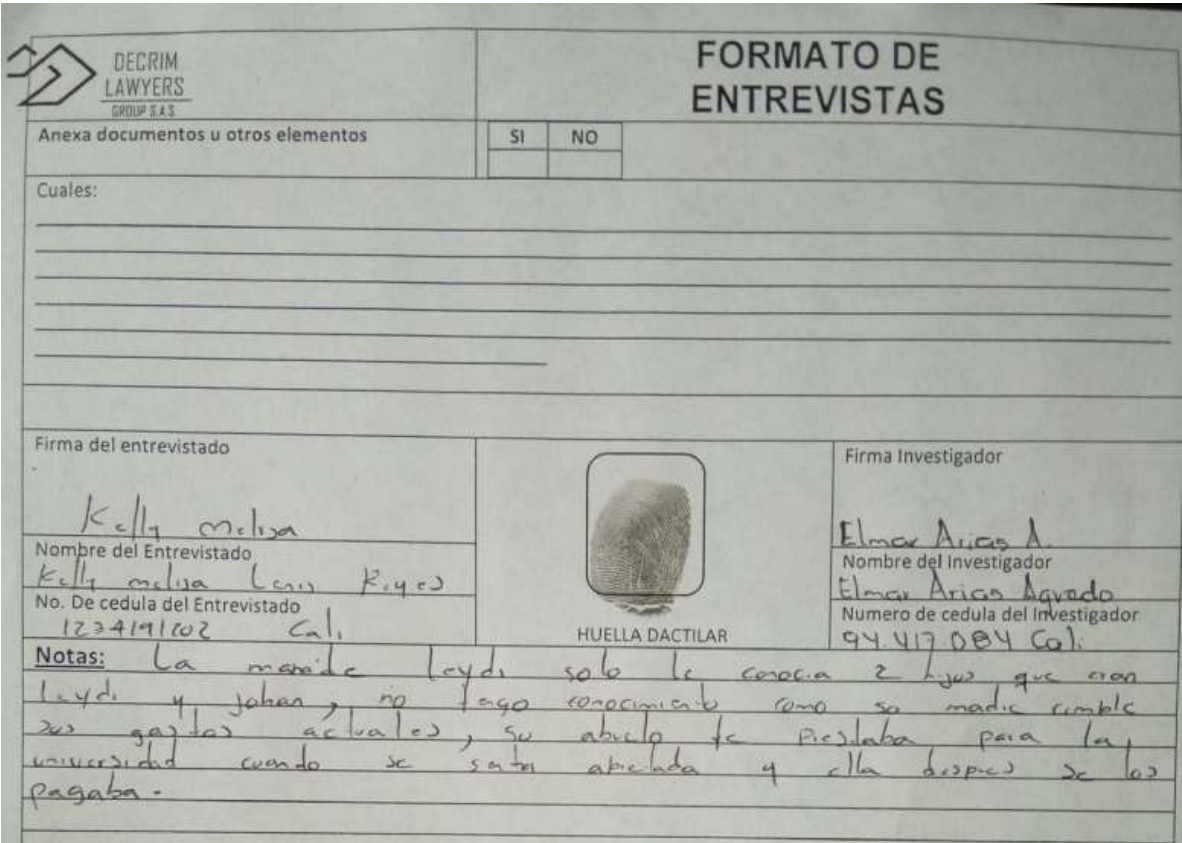 DECRIM
LAWYERS
GROUP S.A.S
FORMATO DE
ENTREVISTAS
Anexa documentos u otros elementos
SI NO
Cuales:
Firma del entrevistado
Kelly melisa
Nombre del Entrevistado
Kelly melisa Lenis Reyes
No. De cedula del Entrevistado
1234191202 Cali
HUELLA DACTILAR
Firma Investigador
Elmar Arias A.
Nombre del Investigador
Elmar Arias Agredo
Numero de cedula del Investigador
94.417 084 Cali
Notas: La mama de leydi solo le conocia 2 hijos que eran
leydi y johan, no tego conocimiento como su madre cumble
sus gastos actuales, su abuelo le prestaba para la
universidad cuando se apretada y ella despues se los
pagaba.